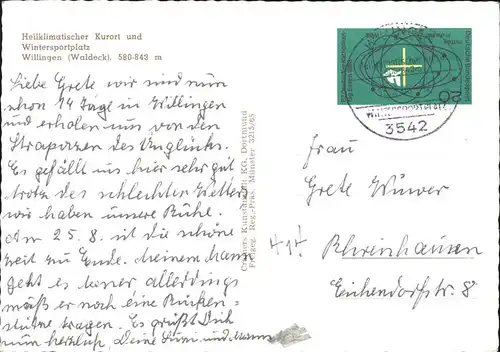 Heilklimatischer Kurort und
Wintersportplatz
Willingen (Waldeck). 580-843 m
Liebe Grete wir sind nun
schon 14 Tage in Willingen
und erholen uns von den
Strapazen des Unglücks.
Es gefällt uns hier sehr gut
trotz des schlechten Wetters
wir haben unsere Ruhe.
Am 25. 8. ist die schöne
Zeit zu Ende. Meinem Mann
geht es besser allerdings
muß er noch eine Rücken-
stütze tragen. Es grüßt Dich
nun herzlich, Deine und Mann
Cramers Kunstanstalt KG, Dortmund
Freigeg. Reg.-Präs. Münster 3215/65
20
3542
Frau
Grete Wüwer
Rheinhausen
Eichendorffstr. 8